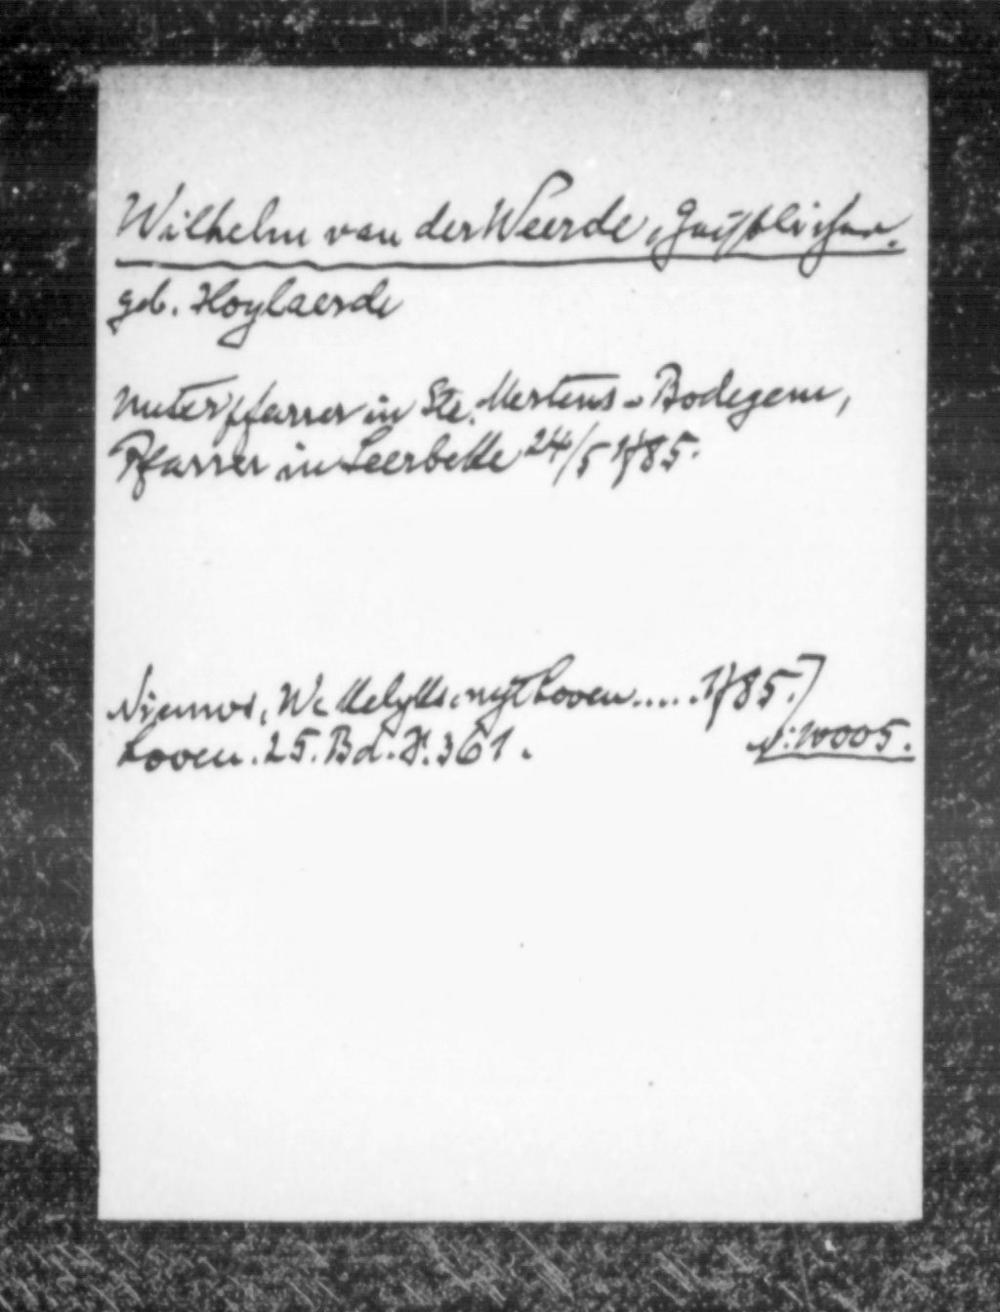 Wilhelm van der Weerde, Geistlicher.
geb. Hoylaerde
Unterpfarrer in Ste. Mertens-Bodegem,
Pfarrer in Leerbeke 24/5 1785.
Nieuws, Wekelyks nyt Loven.....1785.
Loven. 25. Bd. S. 361.